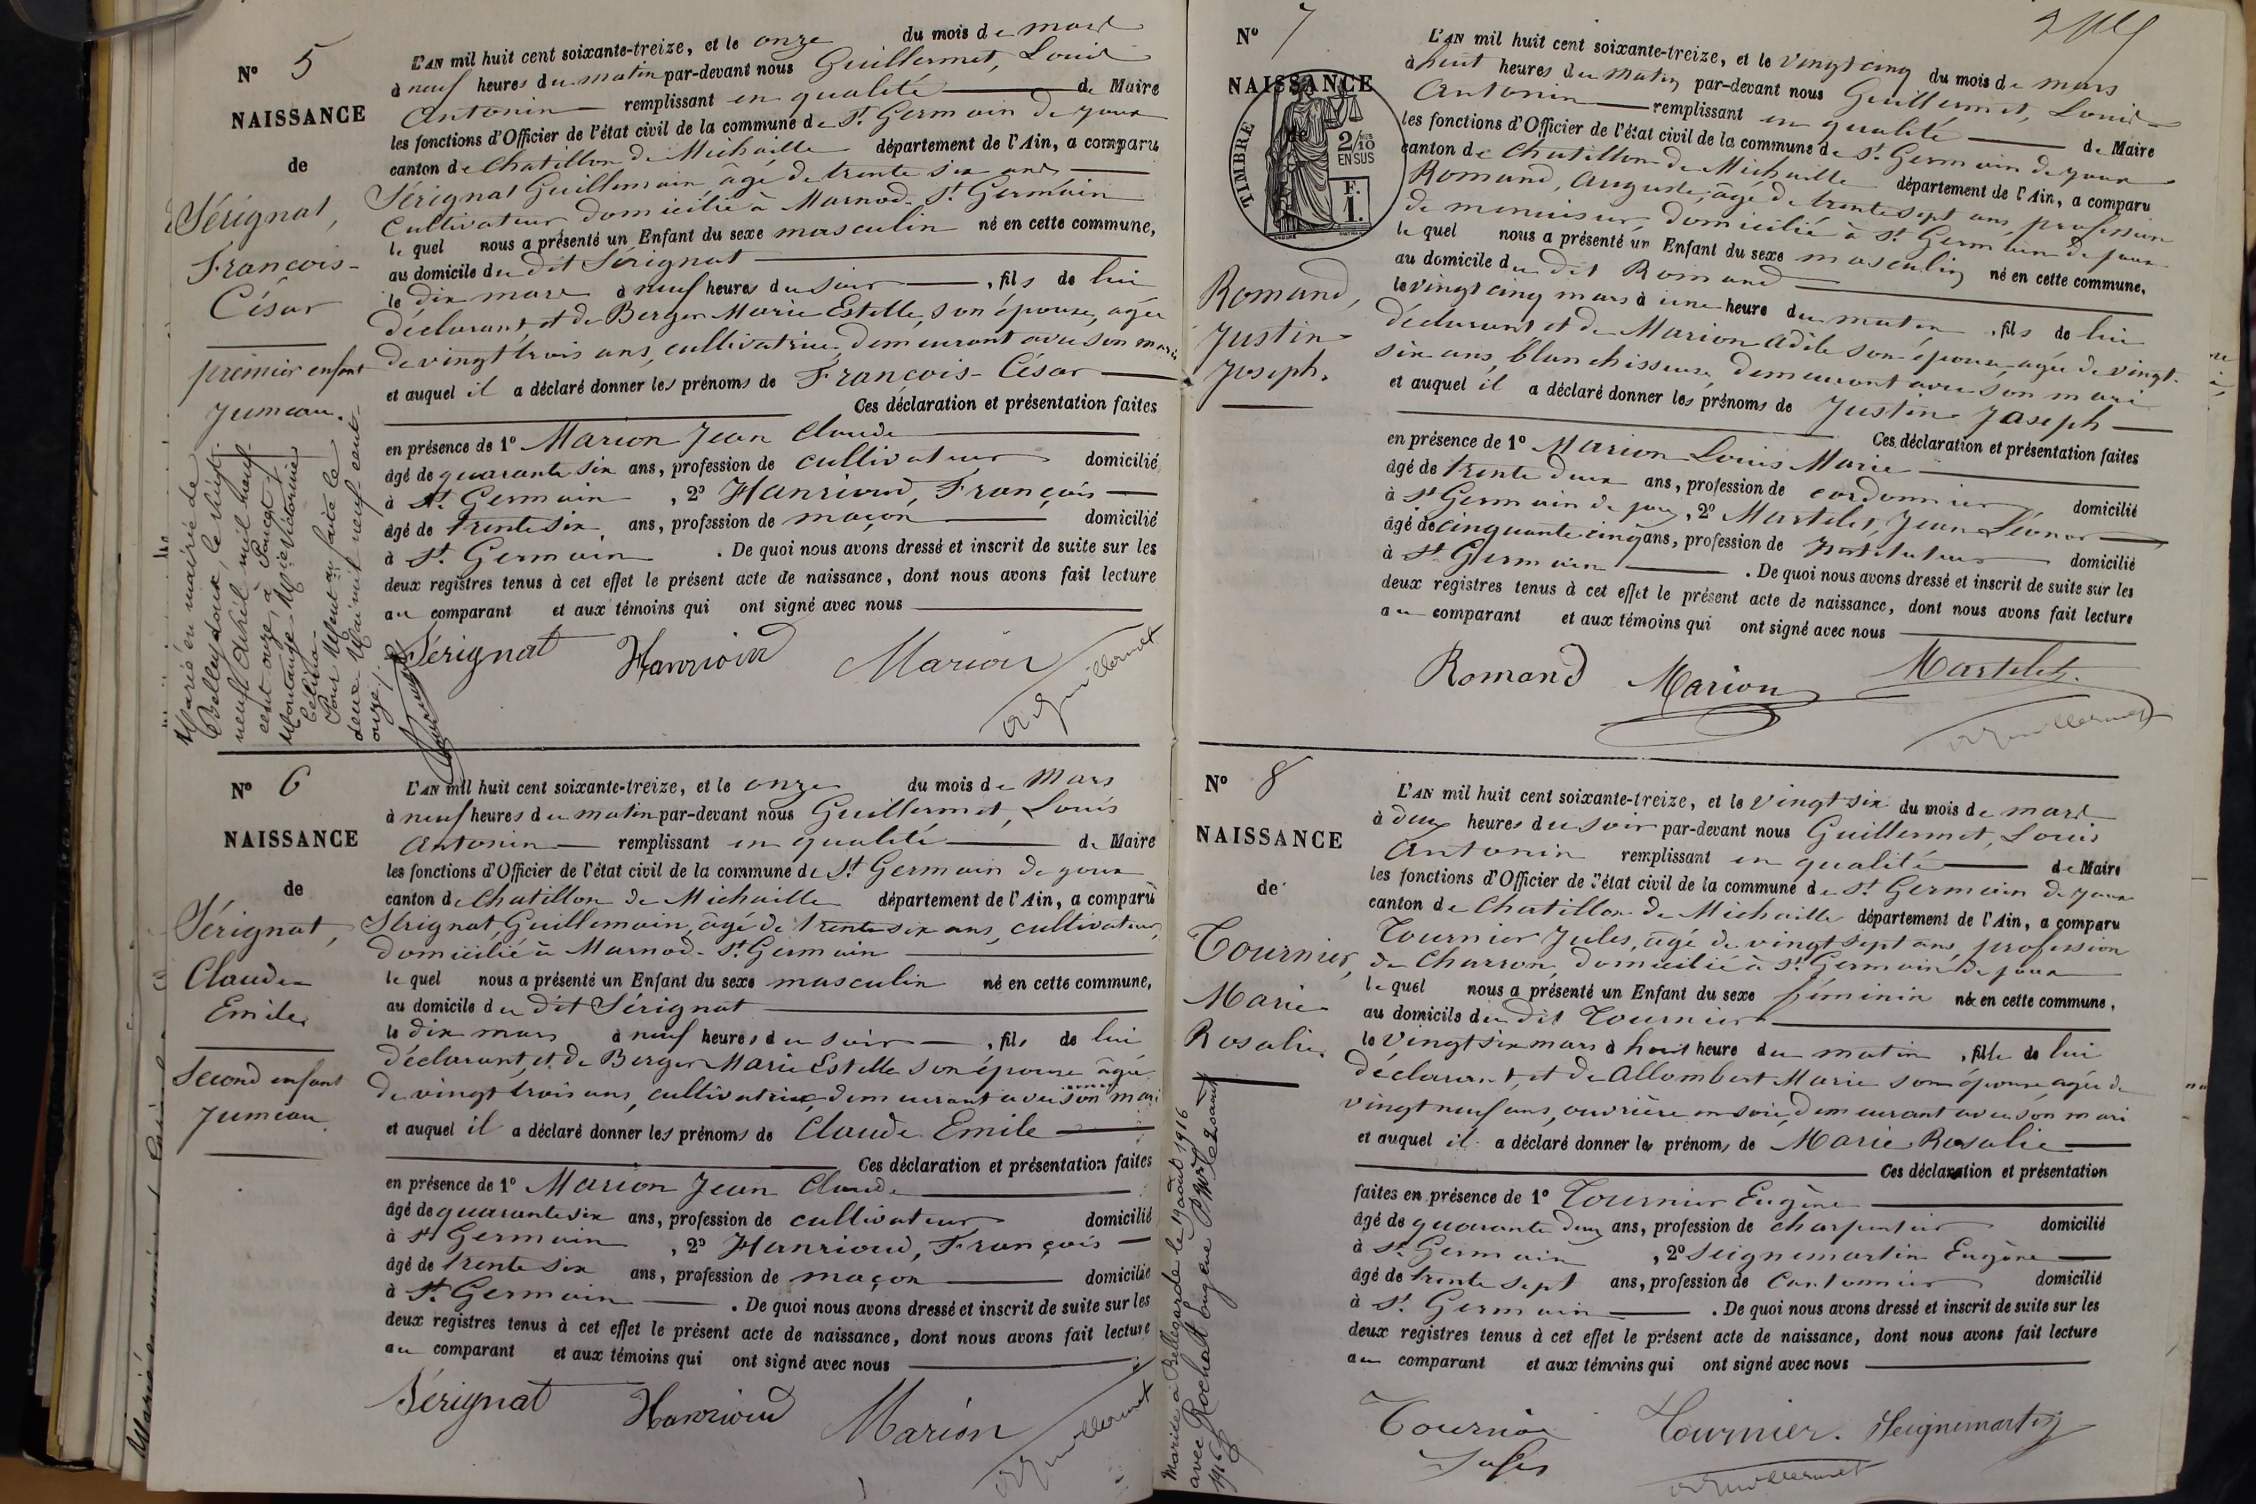 N° 5
NAISSANCE
de
Sérignat,
François-
César
premier enfant
jumeau.
Marié en mairie de
Belleydoux, le vingt-
neuf Avril mil neuf
cent onze, à Poncet
Montange Mie Victorine
Célina
Pour Mention faite le
deux Mai mil neuf cent
onze./.
L'AN mil huit cent soixante-treize, et le onze du mois de mars
à neuf heures du matin par-devant nous Guillermet, Louis
Antonin remplissant en qualité de Maire
les fonctions d'Officier de l'état civil de la commune de St Germain de joux
canton de Chatillon de Michaille département de l'Ain, a comparu
Sérignat Guillemain, âgé de trente six ans
Cultivateur domicilié à Marnod-St Germain
le quel nous a présenté un Enfant du sexe masculin né en cette commune,
au domicile du dit Sérignat
le dix mars à neuf heures du soir, fils de lui
déclarant, et de Berger Marie Estelle, son épouse, agée
de vingt trois ans, cultivatrice, demeurant avec son mari
et auquel il a déclaré donner les prénoms de François-César
Ces déclaration et présentation faites
en présence de 1° Marion Jean Claude
âgé de quarante six ans, profession de cultivateur domicilié
à St Germain, 2° Hanrioud, François
âgé de trente six ans, profession de maçon domicilié
à St Germain. De quoi nous avons dressé et inscrit de suite sur les
deux registres tenus à cet effet le présent acte de naissance, dont nous avons fait lecture
au comparant et aux témoins qui ont signé avec nous
Sérignat Hanrioud Marion
Guillermet
N° 6
NAISSANCE
de
Sérignat,
Claude
Emile,
Second enfant
jumeau.
L'AN mil huit cent soixante-treize, et le onze du mois de Mars
à neuf heures du matin par-devant nous Guillermet, Louis
Antonin remplissant en qualité de Maire
les fonctions d'Officier de l'état civil de la commune de St Germain de joux
canton de Chatillon de Michaille département de l'Ain, a comparu
Sérignat, Guillemain, âgé de trente six ans, cultivateur,
domicilié à Marnod-St Germain
le quel nous a présenté un Enfant du sexe masculin né en cette commune,
au domicile du dit Sérignat
le dix mars à neuf heures du soir, fils de lui
déclarant, et de Berger Marie Estelle son épouse âgée
de vingt trois ans, cultivatrice demeurant avec son mari
et auquel il a déclaré donner les prénoms de Claude Emile
Ces déclaration et présentation faites
en présence de 1° Marion Jean Claude
âgé de quarante six ans, profession de cultivateur domicilié
à St Germain, 2° Hanrioud, François
âgé de trente six ans, profession de maçon domicilié
à St Germain. De quoi nous avons dressé et inscrit de suite sur les
deux registres tenus à cet effet le présent acte de naissance, dont nous avons fait lecture
au comparant et aux témoins qui ont signé avec nous
Sérignat Hanrioud Marion
Guillermet
N° 7
NAISSANCE
de
TIMBRE
2/10
EN SUS
F.
1.
Romand,
Justin
Joseph.
L'AN mil huit cent soixante-treize, et le vingt cinq du mois de mars
à huit heures du matin par-devant nous Guillermet, Louis
Antonin remplissant en qualité de Maire
les fonctions d'Officier de l'état civil de la commune de St Germain de joux
canton de Chatillon de Michaille département de l'Ain, a comparu
Romand, Auguste, âgé de trente sept ans, profession
de menuisier, domicilié à St Germain de joux
le quel nous a présenté un Enfant du sexe masculin né en cette commune,
au domicile du dit Romand
le vingt cinq mars à une heure du matin, fils de lui
déclarant et de Marion Adèle son épouse agée de vingt-
six ans, blanchisseuse, demeurant avec son mari
et auquel il a déclaré donner les prénoms de Justin Joseph
Ces déclaration et présentation faites
en présence de 1° Marion Louis Marie
âgé de trente deux ans, profession de cordonnier domicilié
à St Germain de joux, 2° Martelet, Jean Léonor
âgé de cinquante cinq ans, profession de Instituteur domicilié
à St Germain. De quoi nous avons dressé et inscrit de suite sur les
deux registres tenus à cet effet le présent acte de naissance, dont nous avons fait lecture
au comparant et aux témoins qui ont signé avec nous
Romand Marion Martelet.
Guillermet
N° 8
NAISSANCE
de
Tournier,
Marie
Rosalie.
Mariée à Bellegarde le 19 août 1916
avec Rochat Eugène P. Mon le 20 août
1916
L'AN mil huit cent soixante-treize, et le vingt six du mois de mars
à deux heures du soir par-devant nous Guillermet, Louis
Antonin remplissant en qualité de Maire
les fonctions d'Officier de l'état civil de la commune de St Germain de joux
canton de Chatillon de Michaille département de l'Ain, a comparu
Tournier Jules, âgé de vingt sept ans, profession
de Charron, domicilié à St Germain de joux
le quel nous a présenté un Enfant du sexe féminin née en cette commune,
au domicile du dit Tournier
le vingt six mars à huit heure du matin, fille de lui
déclarant, et de Allombert Marie son épouse agée de
vingt neuf ans, ouvrière en soie, demeurant avec son mari
et auquel il a déclaré donner les prénoms de Marie Rosalie
Ces déclaration et présentation
faites en présence de 1° Tournier Eugène
âgé de quarante deux ans, profession de charpentier domicilié
à St Germain, 2° Seignemartin Eugène
âgé de trente sept ans, profession de Cantonnier domicilié
à St Germain. De quoi nous avons dressé et inscrit de suite sur les
deux registres tenus à cet effet le présent acte de naissance, dont nous avons fait lecture
au comparant et aux témoins qui ont signé avec nous
Tournier Tournier. Seignemartin
Jules
Guillermet